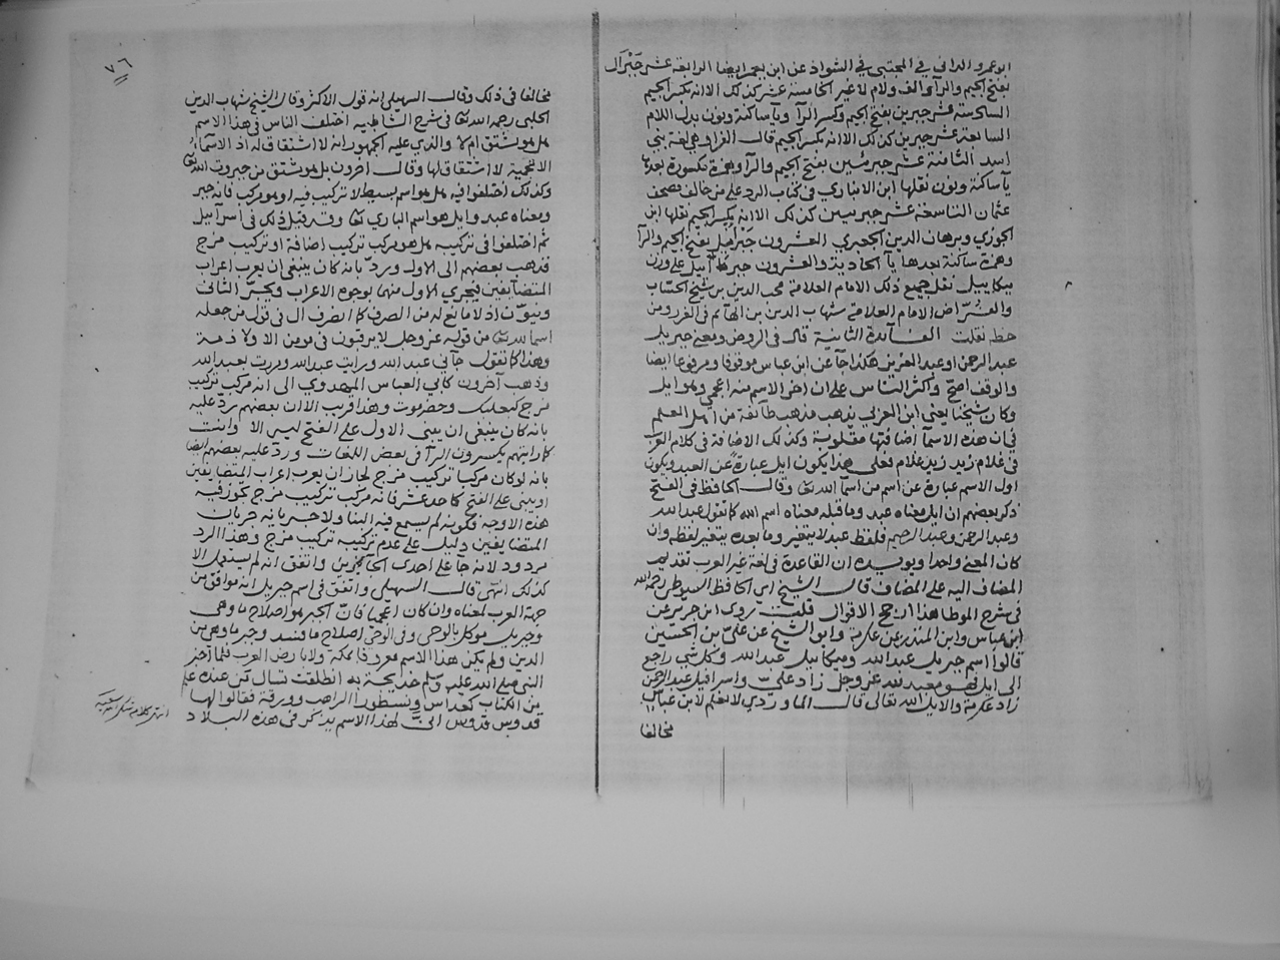 ابو عمرو الداني في المجتبى في الشواذ عن ابن يعمر ايضا الرابعة عشر جَبْرَال
بفتح الجيم والرآ والف ولام لا غير الخامسة عشر كذلك الا انه بكسر الجيم
السادسة عشر جبرين بفتح الجيم وكسر الرآ ويآ ساكنة ونون بدل اللام
السابعة عشر جبرين كذلك الا انه بكسر الجيم قال الفرا وهي لغة بني
اسد الثامنة عشر جبرئين بفتح الجيم والرآ وهمزة مكسورة بعدها
يآ ساكنة ونون نقلها ابن الانباري في كتاب الرد على من خالف مصحف
عثمان التاسعة عشر جبريين كذلك الا انه بكسر الجيم نقلها ابن
الجوزي وبرهان الدين الجعبري العشرون جبرايل بفتح الجيم والرآ
وهمزة ساكنة بعدها يآ الحادية والعشرون على وزن
ميكاييل نقل جميع ذلك الامام العلامة محب الدين بن شيخ الحساب
والفرّاض الامام العلامة شهاب الدين بن الهآئم في الغرر ومن
خطه نقلت الفائدة الثانية قال في الروض ومعنى جبريل
عبد الرحمن او عبد العزيز هكذا جآ عن ابن عباس موقوفا ومرفوعا ايضا
والوقف اصح واكثر الناس على ان آخر الاسم منه اعجمي وهو ايل
وكان شيخنا يعني ابن العربي يذهب مذهب طآئفة من اهل العلم
في ان هذه الاسمآ اضافتها مقلوبة وكذلك الاضافة في كلام العرب
في غلام زيد زيد غلام فعلى هذا يكون ايل عبارة عن العبد ويكون
اول الاسم عبارة عن اسم من اسمآ الله تعالى وقال الحافظ في الفتح
ذكر بعضهم ان ايل معناه عبد وما قبله معناه اسم الله كما تقول عبد الله
وعبد الرحمن وعبد الرحيم فلفظ عبد لا يتغير وما بعده يتغير لفظه وان
كان المعنى واحدا ويويده ان القاعدة في لغة غير العرب تقديم
المضاف اليه على المضاف قال الشيخ اي الحافظ السيوطي رحمه الله
في شرح الموطا هذا ارجح الاقوال قلت روى ابن جرير عن
ابن عباس وابن المنذر عن عكرمة وابو الشيخ عن علي بن الحسين
قالوا اسم جبريل عبد الله وميكائيل عبيد الله وكل شي راجع
الى ايل فهو معبد لله عز وجل زاد علي واسرافيل عبد الرحمن
زاد عكرمة والايل الله تعالى قال الماوردي لا نعلم لابن عباس
مخالفا
٧٦
مخالفا في ذلك وقال السهيلي انه قول الاكثر وقال الشيخ شهاب الدين
الحلبي رحمه الله تعالى في شرح الشاطبية اختلف الناس في هذا الاسم
هل هو مشتق ام لا والذي عليه الجمهور انه لا اشتقاق له اذ الاسمآ
الاعجمية لا اشتقاق لها وقال آخرون بل هو مشتق من جبروت الله تعالى
وكذلك اختلفوا فيه هل هو اسم بسيط لا تركيب فيه او هو مركب فانه جبر
ومعناه عبد وايل هو اسم الباري تعالى وقد قيل ذلك في اسرآئيل
ثم اختلفوا في تركيبه هل هو مركب تركيب اضافة او تركيب مزج
فذهب بعضهم الى الاول ورد بانه كان ينبغي ان يعرب اعراب
المتضآيفين فيجري الاول منهما بوجوه الاعراب ويجر الثاني
وينون اذ لا مانع له من الصرف كما انصرف ال في قول من جعله
اسما لله تعالى من قوله عز وجل لا يرقبون في مومن الا ولا ذمة
وهذا كما تقول جآني عبد الله ورايت عبد الله ومررت بعبد الله
وذهب آخرون كابي العباس المهدوي الى انه مركب تركيب
مزج كبعلبك وحضرموت وهذا قريب الا ان بعضهم رد عليه
بانه كان ينبغي ان يبنى الاول على الفتح ليس الا وانت
كما رايتهم يكسرون الرآ في بعض اللغات ورد عليه بعضهم ايضا
بانه لو كان مركبا تركيب مزج لجاز ان يعرب اعراب المتضايفين
او يبنى على الفتح كاحد عشر فانه مركب تركيب مزج تجوز فيه
هذه الاوجه فكونه لم يسمع فيه البنا ولا جريانه جريان
المتضايفين دليل على عدم تركيبه تركيب مزج وهذا الرد
مردود لانه جآ على احدى الجآئزين واتفق انه لم يستعمل الا
كذلك انتهى قال السهيلي واتفق في اسم جبريل انه موافق من
جهة العرب لمعناه وان كان اعجميا فان الجبر هو اصلاح ما وهى
وجبريل موكل بالوحي وفي الوحي اصلاح ما فسد وجبر ما وهى من
الدين ولم يكن هذا الاسم معروفا بمكة ولا بارض العرب فلما اخبر
النبي صلى الله عليه وسلم خديجة به انطلقت تسال من عنده علم
من الكتاب كعداس ونسطورا الراهب وورقة فقالوا لها
قدوس قدوس انى لهذا الاسم يذكر في هذه البلاد